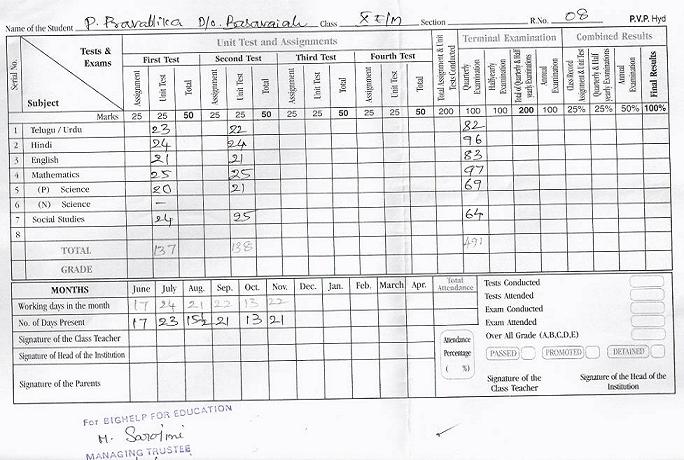 Name of the Student P. Pravallika D/o. Basavaiah Class X E/M Section R.No. 08 P.V.P. Hyd
Serial No. Tests & Exams Subject Unit Test and Assignments Total Assignment & Unit Tests Conducted Terminal Examination Combined Results
First Test Second Test Third Test Fourth Test
Assignment Unit Test Total Assignment Unit Test Total Assignment Unit Test Total Assignment Unit Test Total Quarterly Examination Halfyearly Examination Total of Quarterly & Half yearly Examinations Annual Examination Class Record Assignment & Unit Test Quarterly & Half yearly Examinations Annual Examination Final Results
Marks 25 25 50 25 25 50 25 25 50 25 25 50 200 100 100 200 100 25% 25% 50% 100%
1 Telugu / Urdu 23 22 82
2 Hindi 24 24 96
3 English 21 21 83
4 Mathematics 25 25 97
5 (P) Science 20 21 69
6 (N) Science –
7 Social Studies 24 25 64
8
TOTAL 137 138 491
GRADE
MONTHS June July Aug. Sep. Oct. Nov. Dec. Jan. Feb. March Apr. Total Attendance
Working days in the month 17 24 21 22 13 22
No. of Days Present 17 23 15½ 21 13 21
Signature of the Class Teacher
Signature of Head of the Institution
Signature of the Parents
Attendance Percentage ( %)
Tests Conducted
Tests Attended
Exam Conducted
Exam Attended
Over All Grade (A,B,C,D,E)
PASSED PROMOTED DETAINED
Signature of the Class Teacher Signature of the Head of the Institution
For BIGHELP FOR EDUCATION
M. Sarojini
MANAGING TRUSTEE